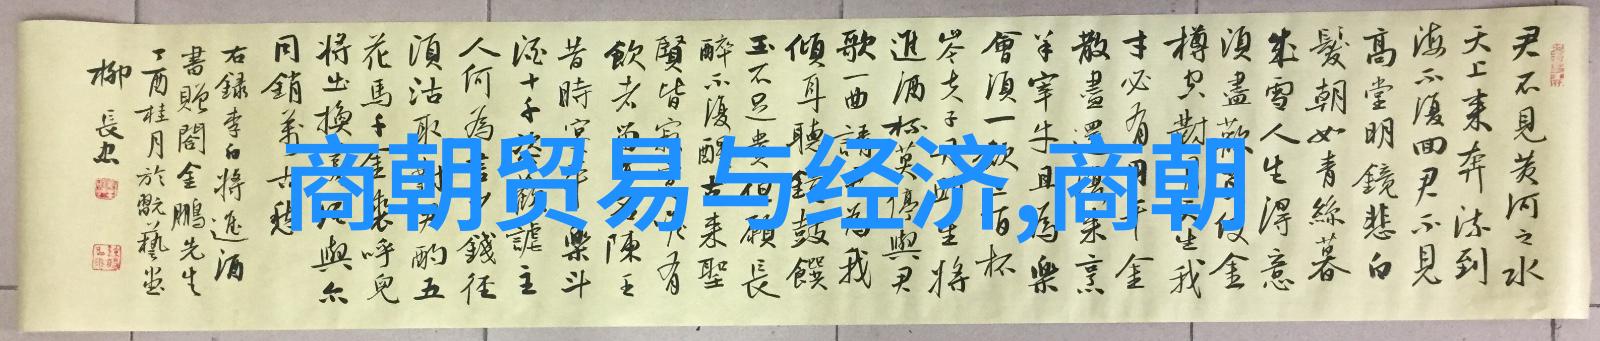 君不见黄河之水
天上来奔流到
海不復回君不見
高堂明鏡悲白
髮朝如青絲暮
成雪人生得意
須盡歡
樽空對月天生我
才必有用千金
散盡還復来烹
羊宰牛且為樂
會須一飲三百杯
岑夫子丹丘生将
進酒杯莫停與君
歌一曲請君為我
傾耳聽鐘鼓饌
玉不足貴但願長
醉不復醒古来聖
賢皆寂寞惟有
飲者留其名陳王
昔時宴平樂斗
酒十千恣歡謔主
人何為言少錢径
須沽取對君酌五
花馬千金裘呼兒
将出換美酒與尔
同銷萬古愁
右録李白将進酒
書贈閣金鵬先生
丁酉桂月於
柳長忠
商朝贸易与经济,商朝